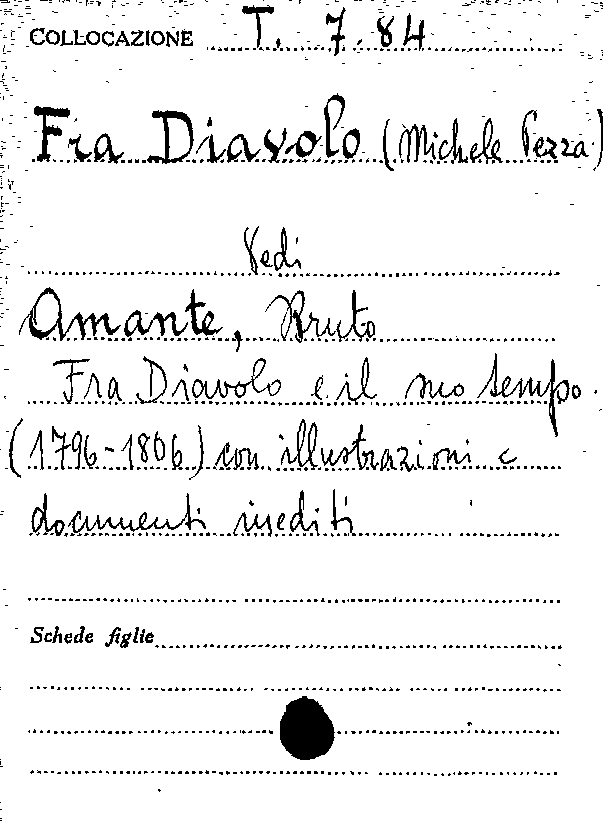 COLLOCAZIONE T. 7. 84
Fra Diavolo (Michele Pezza)
Vedi
Amante, Bruto
Fra Diavolo e il suo tempo.
(1796-1806) con illustrazioni e
documenti inediti
Schede figlie